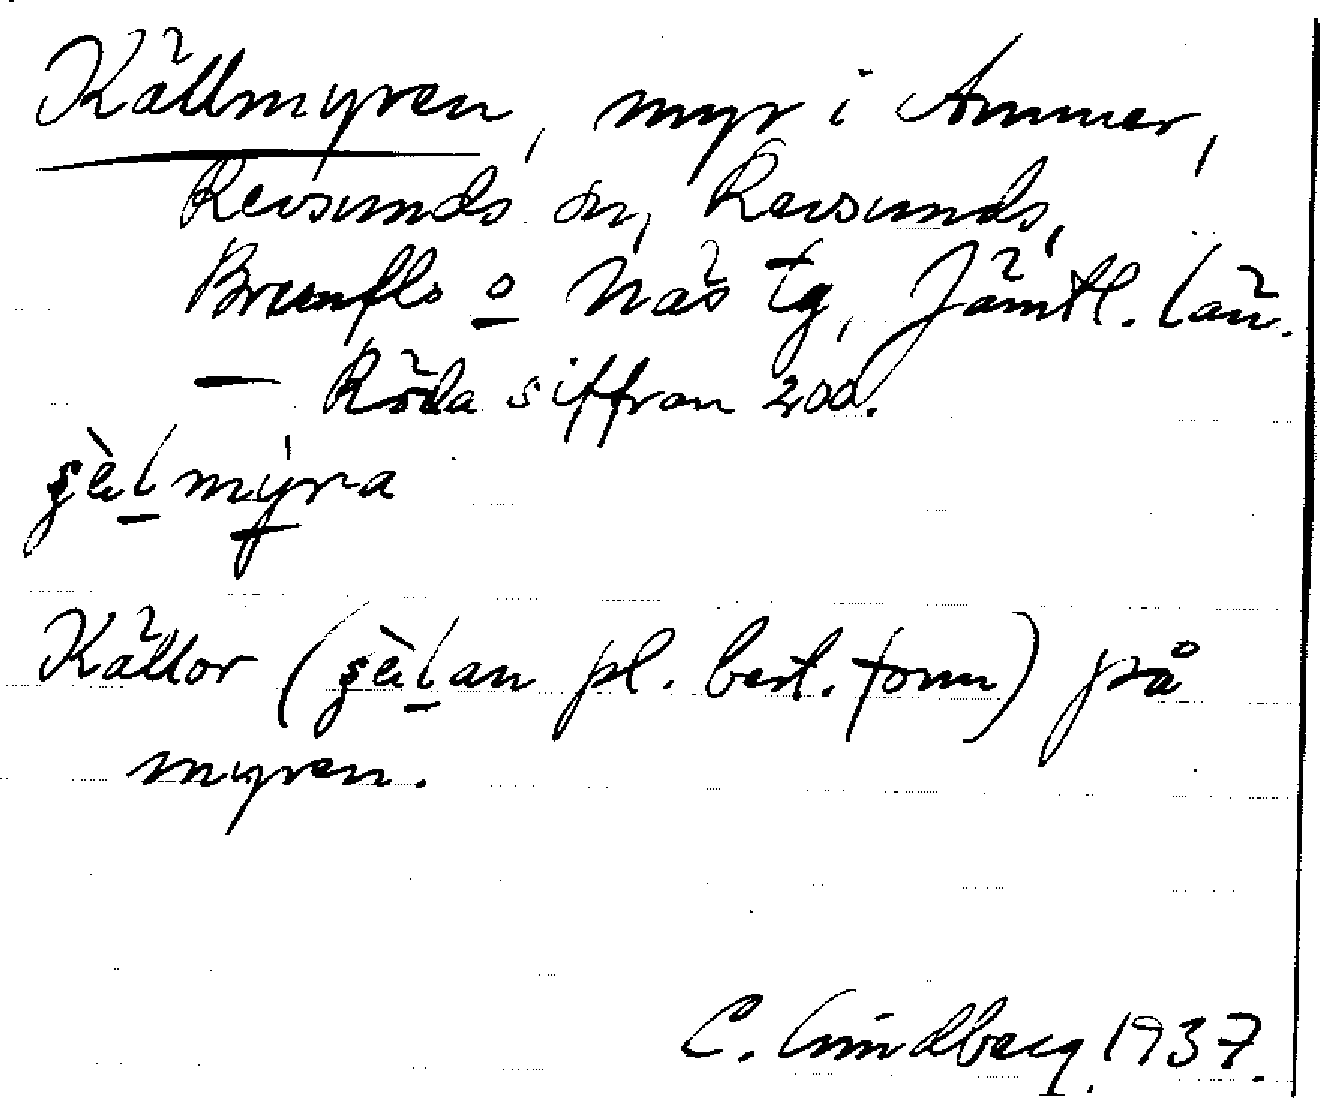 Källmyren, myr i Ammer,
Revsunds sn, Revsunds,
Brunflo o Näs tg, Jämtl. län.
— Röda siffran 200.
şèlmýra
Källor (şèlan pl. best. form) på
myren.
C. Lindberg. 1937.